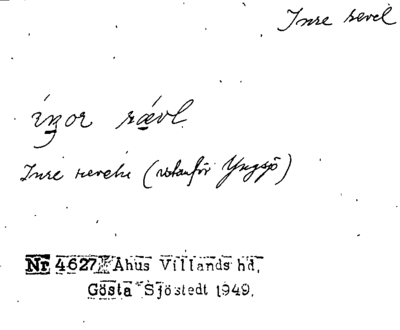 Inre revel
íŋor rævl
Inre reveln (utanför Yngsjö)
Nr 4627 Åhus Villands hd,
Gösta Sjöstedt 1949.